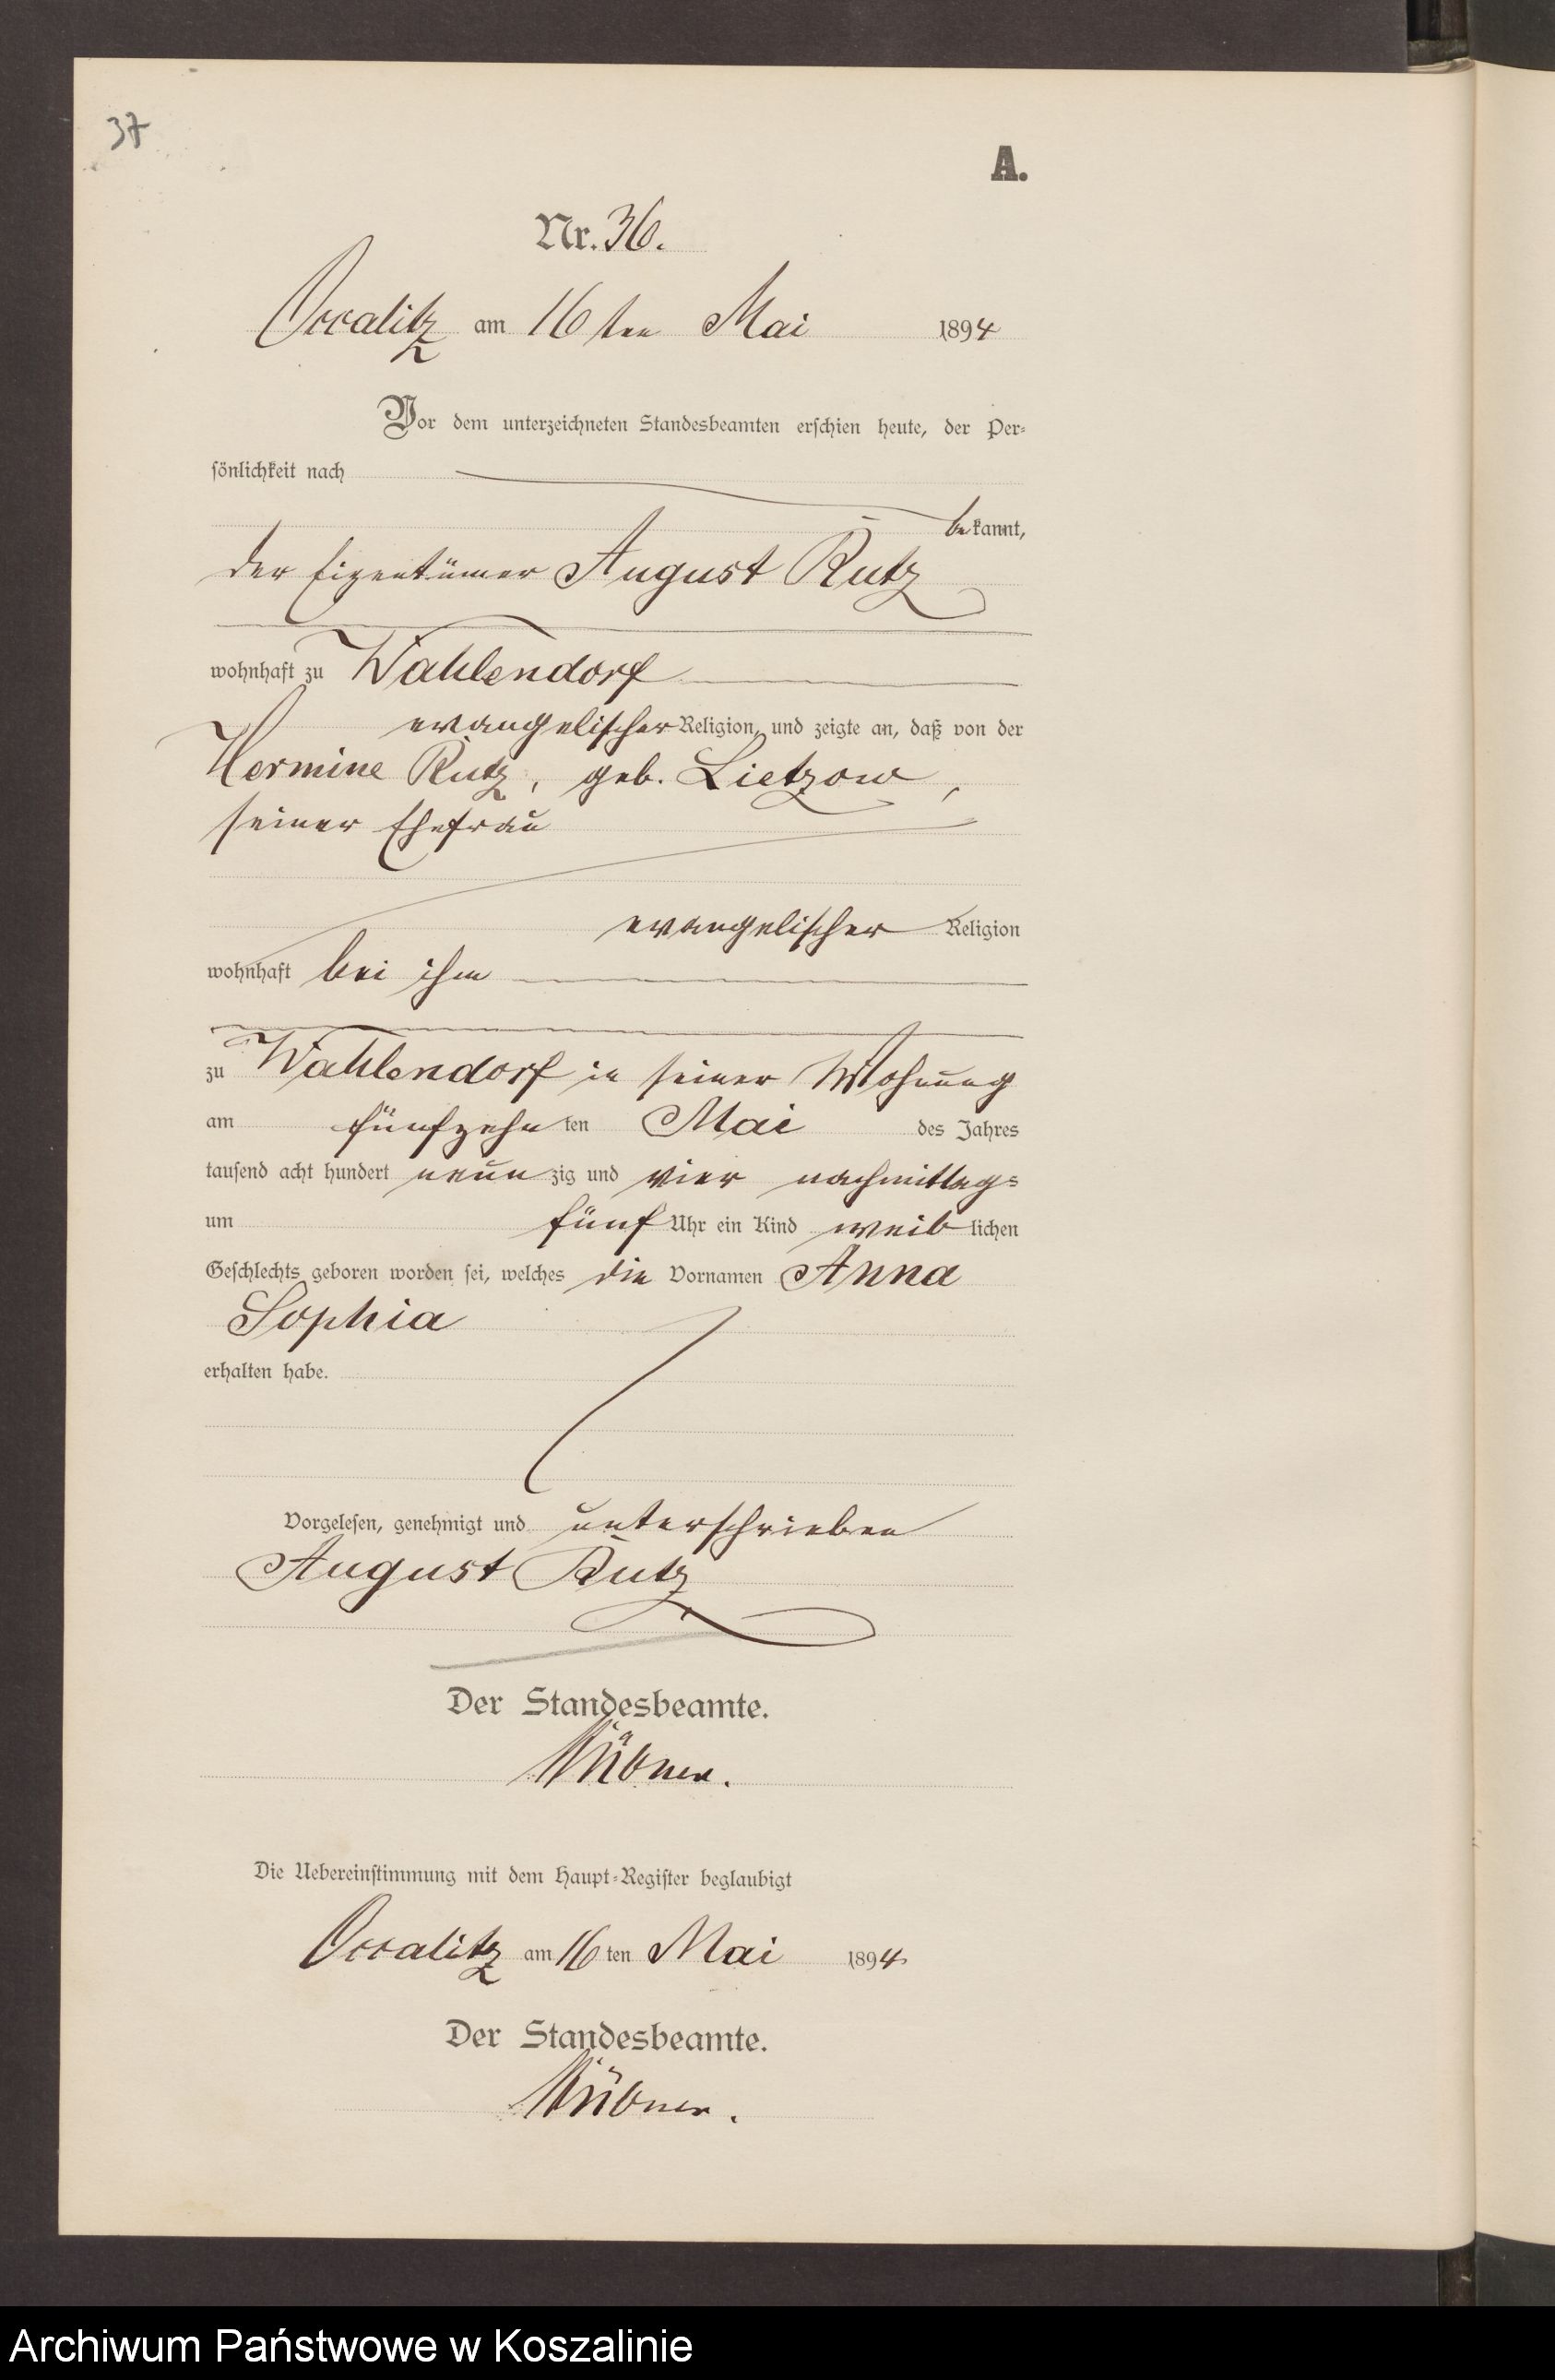 37
A.
Nr. 36.
Occalitz am 16 ten Mai 1894
Vor dem unterzeichneten Standesbeamten erschien heute, der Per-
sönlichkeit nach
bekannt,
der Eigentümer August Rutz
wohnhaft zu Wahlendorf
evangelischer Religion, und zeigte an, daß von der
Hermine Rutz, geb. Lietzow,
seiner Ehefrau
evangelischer Religion
wohnhaft bei ihm
zu Wahlendorf in seiner Wohnung
am fünfzehn ten Mai des Jahres
tausend acht hundert neun zig und vier nachmittags
um fünf Uhr ein Kind weib lichen
Geschlechts geboren worden sei, welches die Vornamen Anna
Sophia
erhalten habe.
Vorgelesen, genehmigt und unterschrieben
August Rutz
Der Standesbeamte.
Die Uebereinstimmung mit dem Haupt-Register beglaubigt
Occalitz am 16 ten Mai 1894
Der Standesbeamte.
Archiwum Państwowe w Koszalinie